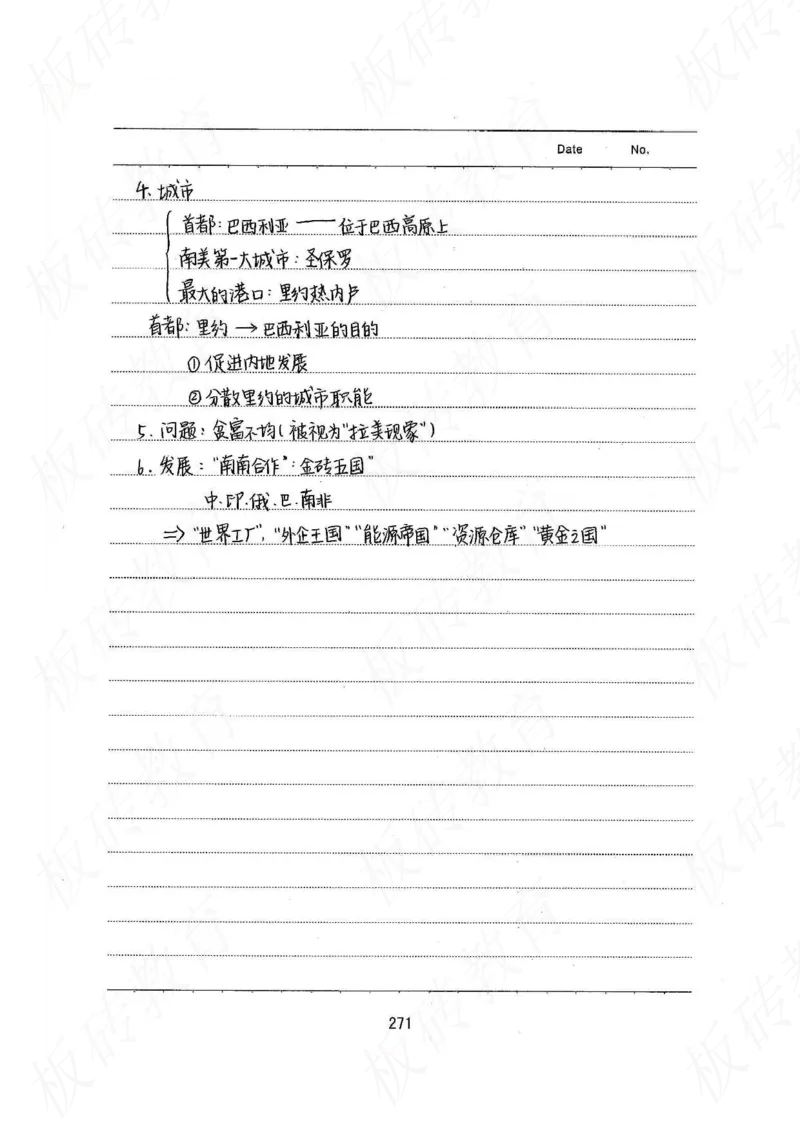 Date No.
4. 城市
首都：巴西利亚 —— 位于巴西高原上
南美第一大城市：圣保罗
最大的港口：里约热内卢
首都：里约 → 巴西利亚的目的
① 促进内地发展
② 分散里约的城市职能
5. 问题：贫富不均（被视为“拉美现象”）
6. 发展：“南南合作”：金砖五国”
中.印.俄.巴.南非
=> “世界工厂”，“外企王国”“能源帝国”“资源仓库”“黄金之国”
271
板砖教育